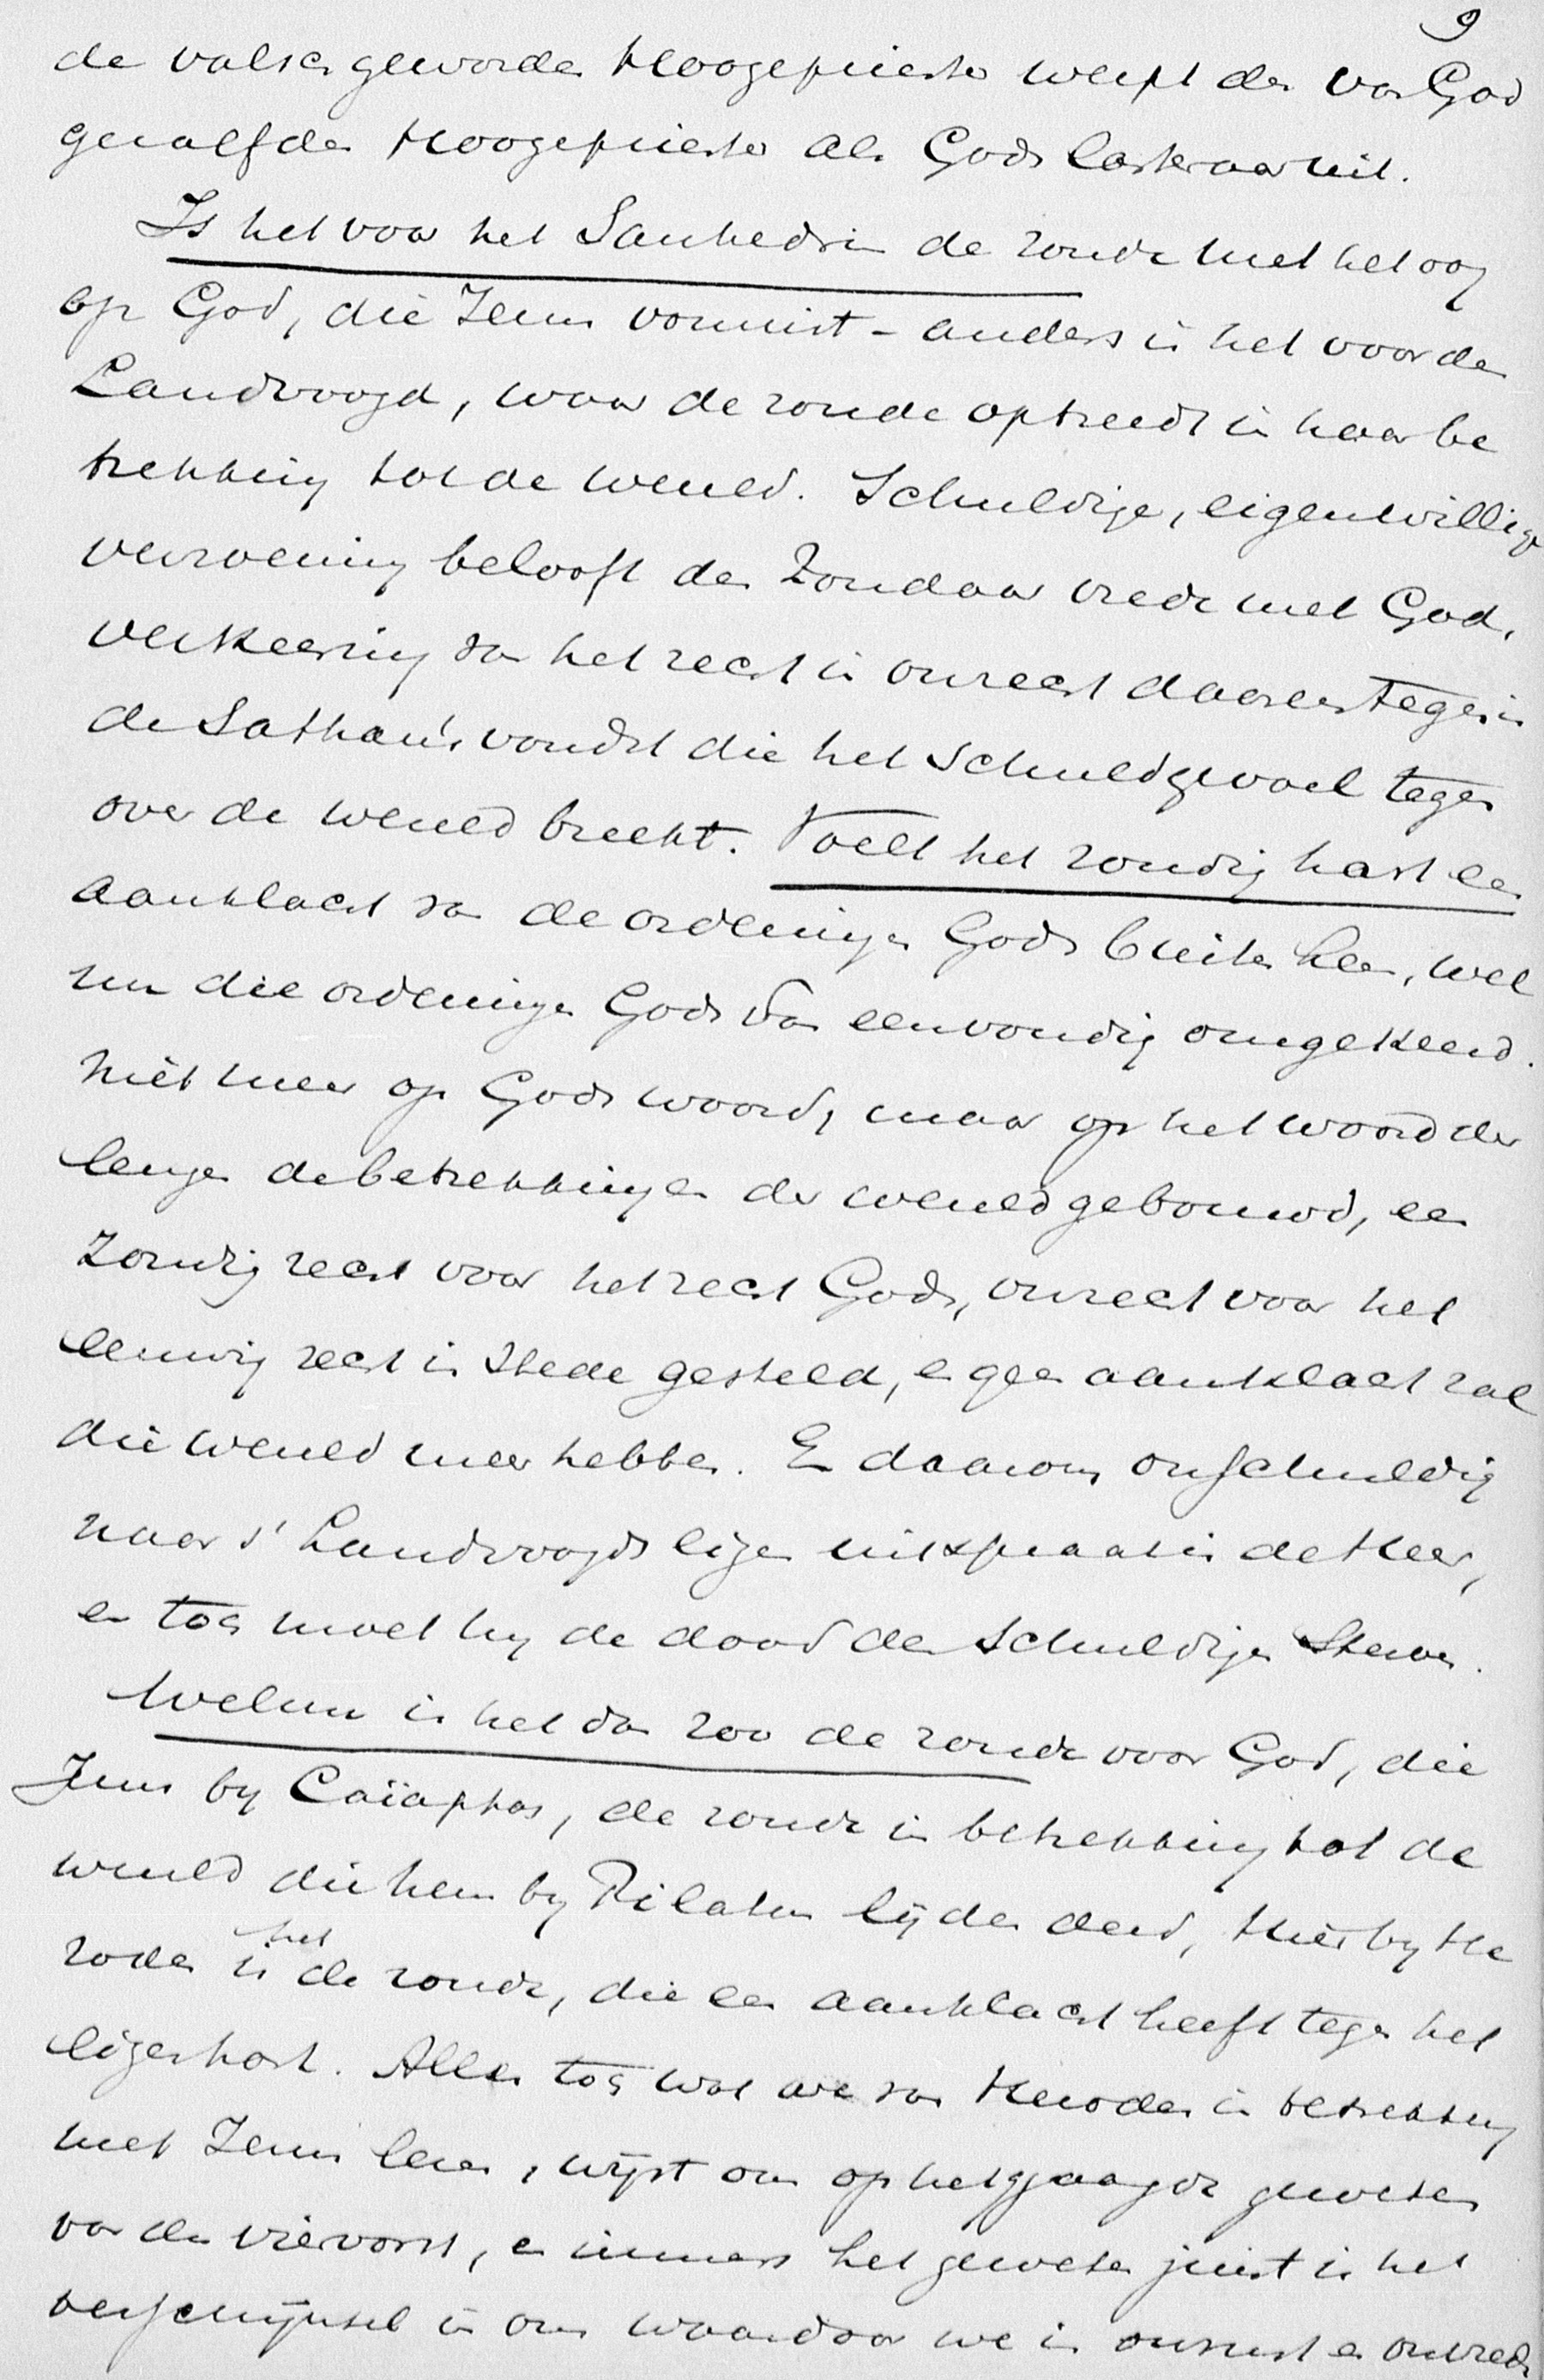 9
de valsch geworden Hoogepriester werpt den van God
gezalfden Hoogepriester als Gods lasteraar uit.
Is het voor het Sanhedrin de zonde met het oog
op God, die Jezus vonnist - anders is het voor den
Landvoogd, waar de zonde optreedt in haar be
trekking tot de wereld. Schuldige, eigenwillige
verzoening belooft den Zondaar vrede met God,
verkeering van het recht in onrecht daarentegen is
de Sathan's vondst die het schuldgevoel tegen
over de wereld breekt. Voelt het zondig hart een
aanklacht van de ordeningen Gods buiten hem, wel
nu die ordeningen Gods dan eenvoudig omgekeerd.
Niet meer op Gods woord, maar op het woord der
leugen de betrekkingen der wereld gebouwd, een
Zondig recht voor het recht Gods, onrecht voor het
eeuwig recht in stede gesteld, en geen aanklacht zal
die wereld meer hebben. En daarom onschuldig
naar s' Landvoogds eigen uitspraak is de Heer,
en toch moet hy de dood der schuldigen sterven.
Welnu is het dan zoo de zonde voor God, die
Jezus by Caïaphas, de zonde in betrekking tot de
wereld die hem by Pilatus lijden deed, Hier by He
rodes is het de zonde, die een aanklacht heeft tegen het
eigen hart. Alles toch wat we van Herodes in betrekking
met Jezus lezen, wijst ons op het gejaagde geweten
van den viervorst, en immers het geweten juist is het
verschijnsel in ons waardoor we in onrust en onvrede